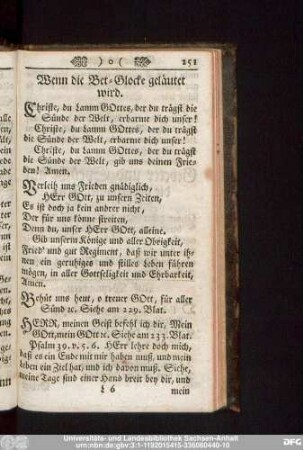 ) o (
251
Wenn die Bet-Glocke geläutet
wird.
Christe, du Lamm GOttes, der du trägst die
Sünde der Welt, erbarme dich unser!
Christe, du Lamm GOttes, der du trägst
die Sünde der Welt, erbarme dich unser!
Christe, du Lamm GOttes, der du trägst
die Sünde der Welt, gib uns deinen Frie-
den! Amen.
Verleih uns Frieden gnädiglich,
HErr GOtt, zu unsern Zeiten,
Es ist doch ja kein andrer nicht,
Der für uns könne streiten,
Denn du, unser HErr GOtt, alleine.
Gib unserm Könige und aller Obrigkeit,
Fried' und gut Regiment, daß wir unter ih-
nen ein geruhiges und stilles Leben führen
mögen, in aller Gottseligkeit und Ehrbarkeit,
Amen.
Behüt uns heut, o treuer GOtt, für aller
Sünd ꝛc. Siehe am 229. Blat.
HERR, meinen Geist befehl ich dir, Mein
GOtt, mein GOtt ꝛc. Siehe am 233. Blat.
Psalm 39. v. 5. 6. HErr lehre doch mich,
daß es ein Ende mit mir haben muß, und mein
Leben ein Ziel hat, und ich davon muß. Siehe,
meine Tage sind einer Hand breit bey dir, und
L 6
mein
Universitäts- und Landesbibliothek Sachsen-Anhalt
urn:nbn:de:gbv:3:1-1192015415-336060440-10
DFG